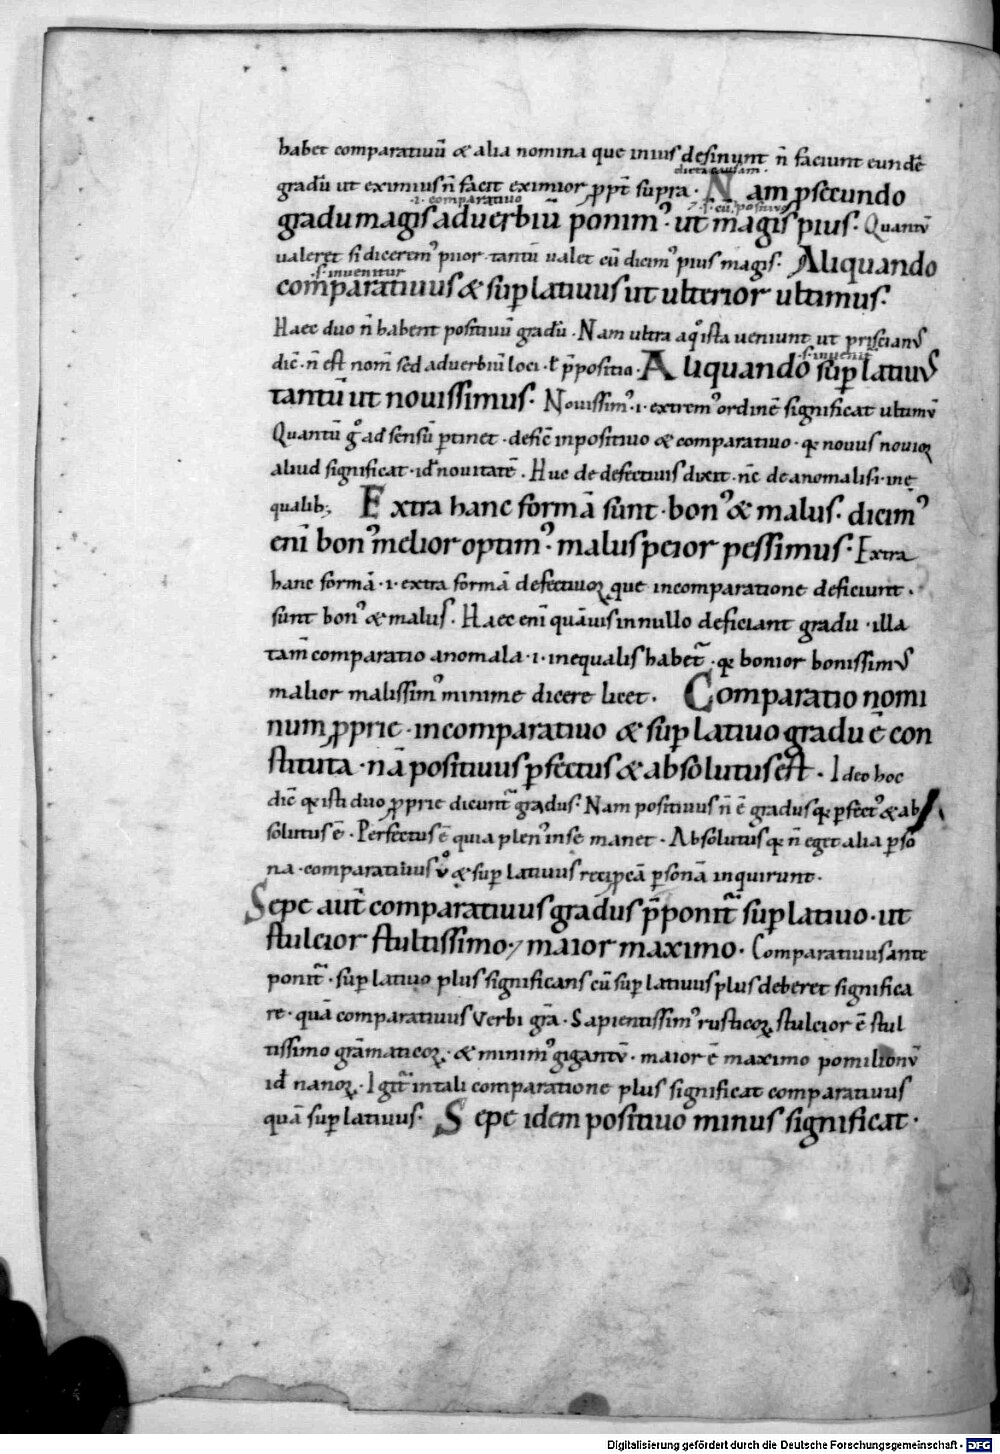 habet comparatiuū & alia nomina que in ius desinunt n̄ faciunt eundē
dictā causam.
gradū ut eximius n̄ facit eximior ꝓpt̄ supra. Nam ꝓ secundo
.i. comparatiuo
.s. cū positiuo
gradu magis aduerbiū ponimꝰ. ut magis pius. Quantū
ualeret si diceremꝰ piior. tantū ualet cū dicimꝰ pius magis. Aliquando
.s. inuenitur
comparatiuus & suꝑlatiuus ut ulterior ultimus.
Haec duo n̄ habent positiuū gradū. Nam ultra a qͦ ista ueniunt ut priscianus
dic̄. n̄ est nom̄ sed aduerbiū loci. ł p̄positio. Aliquando suꝑlatiuus
.s. inuenit̄
tantū ut nouissimus. Nouissimꝰ .i. extremꝰ ordinē significat ultimū
Quantū gͦ ad sensū ꝑtinet. defic̄ in positiuo & comparatiuo. qꝛ nouus nouioꝝ
aliud significat. id̄ nouitatē. Huc de defectiuis dixit. nc̄ de anomalis .i. ine
qualib; Extra hanc formā sunt. bonꝰ & malus. dicimꝰ
enī bonꝰ melior optimꝰ. malus peior pessimus. Extra
hanc formā .i. extra formā defectiuoꝝ que in comparatione deficiunt.
sunt bonꝰ & malus. Haec enī quāuis in nullo deficiant gradu. illa
tam̄ comparatio anomala .i. inequalis habet̄. qꝛ bonior bonissimus
malior malissimꝰ minime dicere licet. Comparatio nomi
num ꝓprie. in comparatiuo & suꝑlatiuo gradu ē con
stituta. nā positiuus ꝑfectus & absolutus est. Ideo hoc
dic̄ qꝛ isti duo ꝓprie dicunt̄ gradus. Nam positiuus n̄ ē gradus qꝛ ꝑfectꝰ & ab
solutus ē. Perfectus ē quia plenꝰ in se manet. Absolutus qꝛ n̄ eget alia ꝑso
na. comparatiuus uͦ & suꝑlatiuus recipcā ꝑsonā inquirunt.
Sepe aut̄ comparatiuus gradus p̄ponit̄ suꝑlatiuo. ut
stulcior stultissimo, maior maximo. Comparatiuus ante
ponit̄. suꝑlatiuo plus significans cū suꝑlatiuus plus deberet significa
re. quā comparatiuus Verbi gr̄a. Sapientissimꝰ rusticoꝝ stulcior ē stul
tissimo grāmaticoꝝ. & minimꝰ gigantū. maior ē maximo pomilionū
id̄ nanoꝝ. Igit̄ in tali comparatione plus significat comparatiuus
quā suꝑlatiuus. Sepe idem positiuo minus significat.